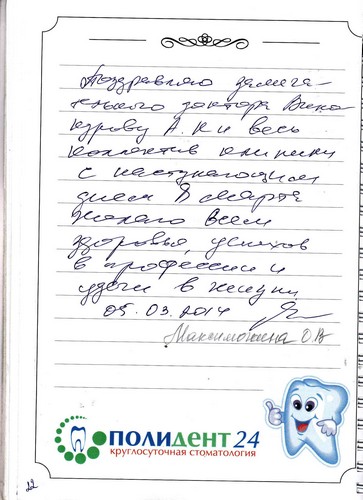 Поздравляю замеча-
тельного доктора Вино
курову А. К и весь
коллектив клиники
с наступающим
днем 8 марта
желаю всем
здоровья, успехов
в профессии и
удачи в жизни
05.03.2014
Максимошкина О.В
ПОЛИДЕНТ 24
круглосуточная стоматология
22